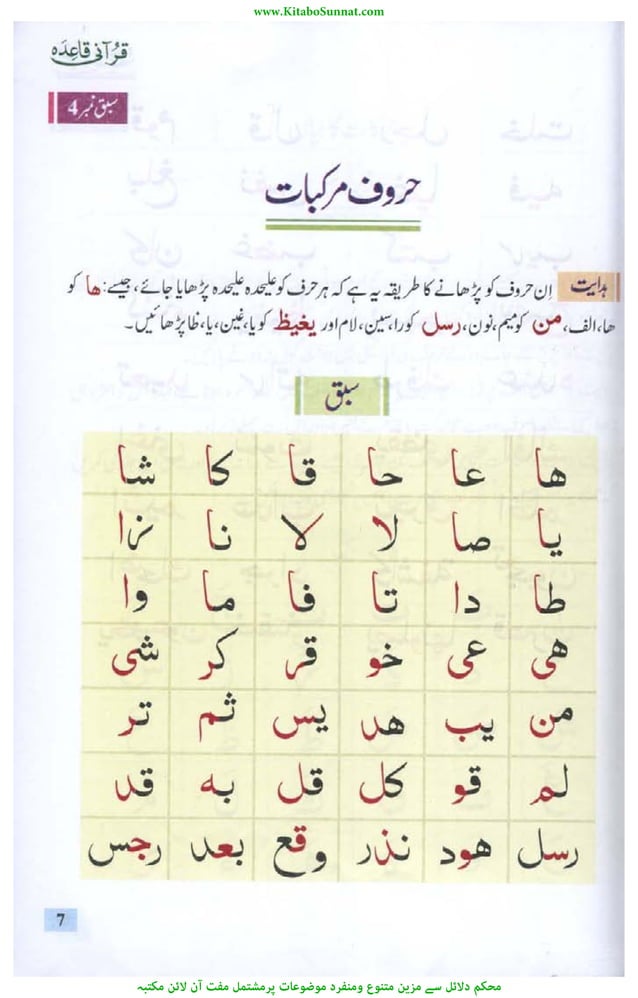 www.KitaboSunnat.com
قرآنی قاعِدَہ
سبق نمبر 4
حروف مرکبات
ہدایت اِن حروف کو پڑھانے کا طریقہ یہ ہے کہ ہر حرف کو علیحدہ علیحدہ پڑھایا جائے، جیسے: ھا کو
ھا، الف، من کو میم، نون، رسل کو را، سین، لام اور یغیظ کو یا، غین، یا، ظا پڑھائیں۔
سبق
ھا عا حا قا کا شا
یا صا لا لا نا نزا
طا دا تا فا ما وا
ھی عی خو قر کر شی
من یب ھد یس ثم تر
لم قو کل قل بہ قد
رسل ھود نذر وقع بعد رجس
7
محکم دلائل سے مزین متنوع ومنفرد موضوعات پرمشتمل مفت آن لائن مکتبہ